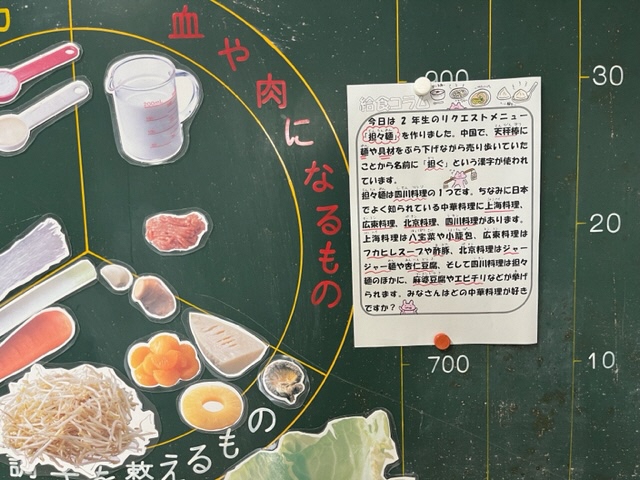 血や肉になるもの
調子を整えるもの
給食コラム
今日は2年生のリクエストメニュー
「担々麺」を作りました。中国で、天秤棒に
麺や具材をぶら下げながら売り歩いていた
ことから名前に「担ぐ」という漢字が使われ
ています。
担々麺は四川料理の1つです。ちなみに日本
でよく知られている中華料理に上海料理、
広東料理、北京料理、四川料理があります。
上海料理は八宝菜や小籠包、広東料理は
フカヒレスープや酢豚、北京料理はジャー
ジャー麺や杏仁豆腐、そして四川料理は担々
麺のほかに、麻婆豆腐やエビチリなどが挙げ
られます。みなさんはどの中華料理が好き
ですか？
30
20
700
10